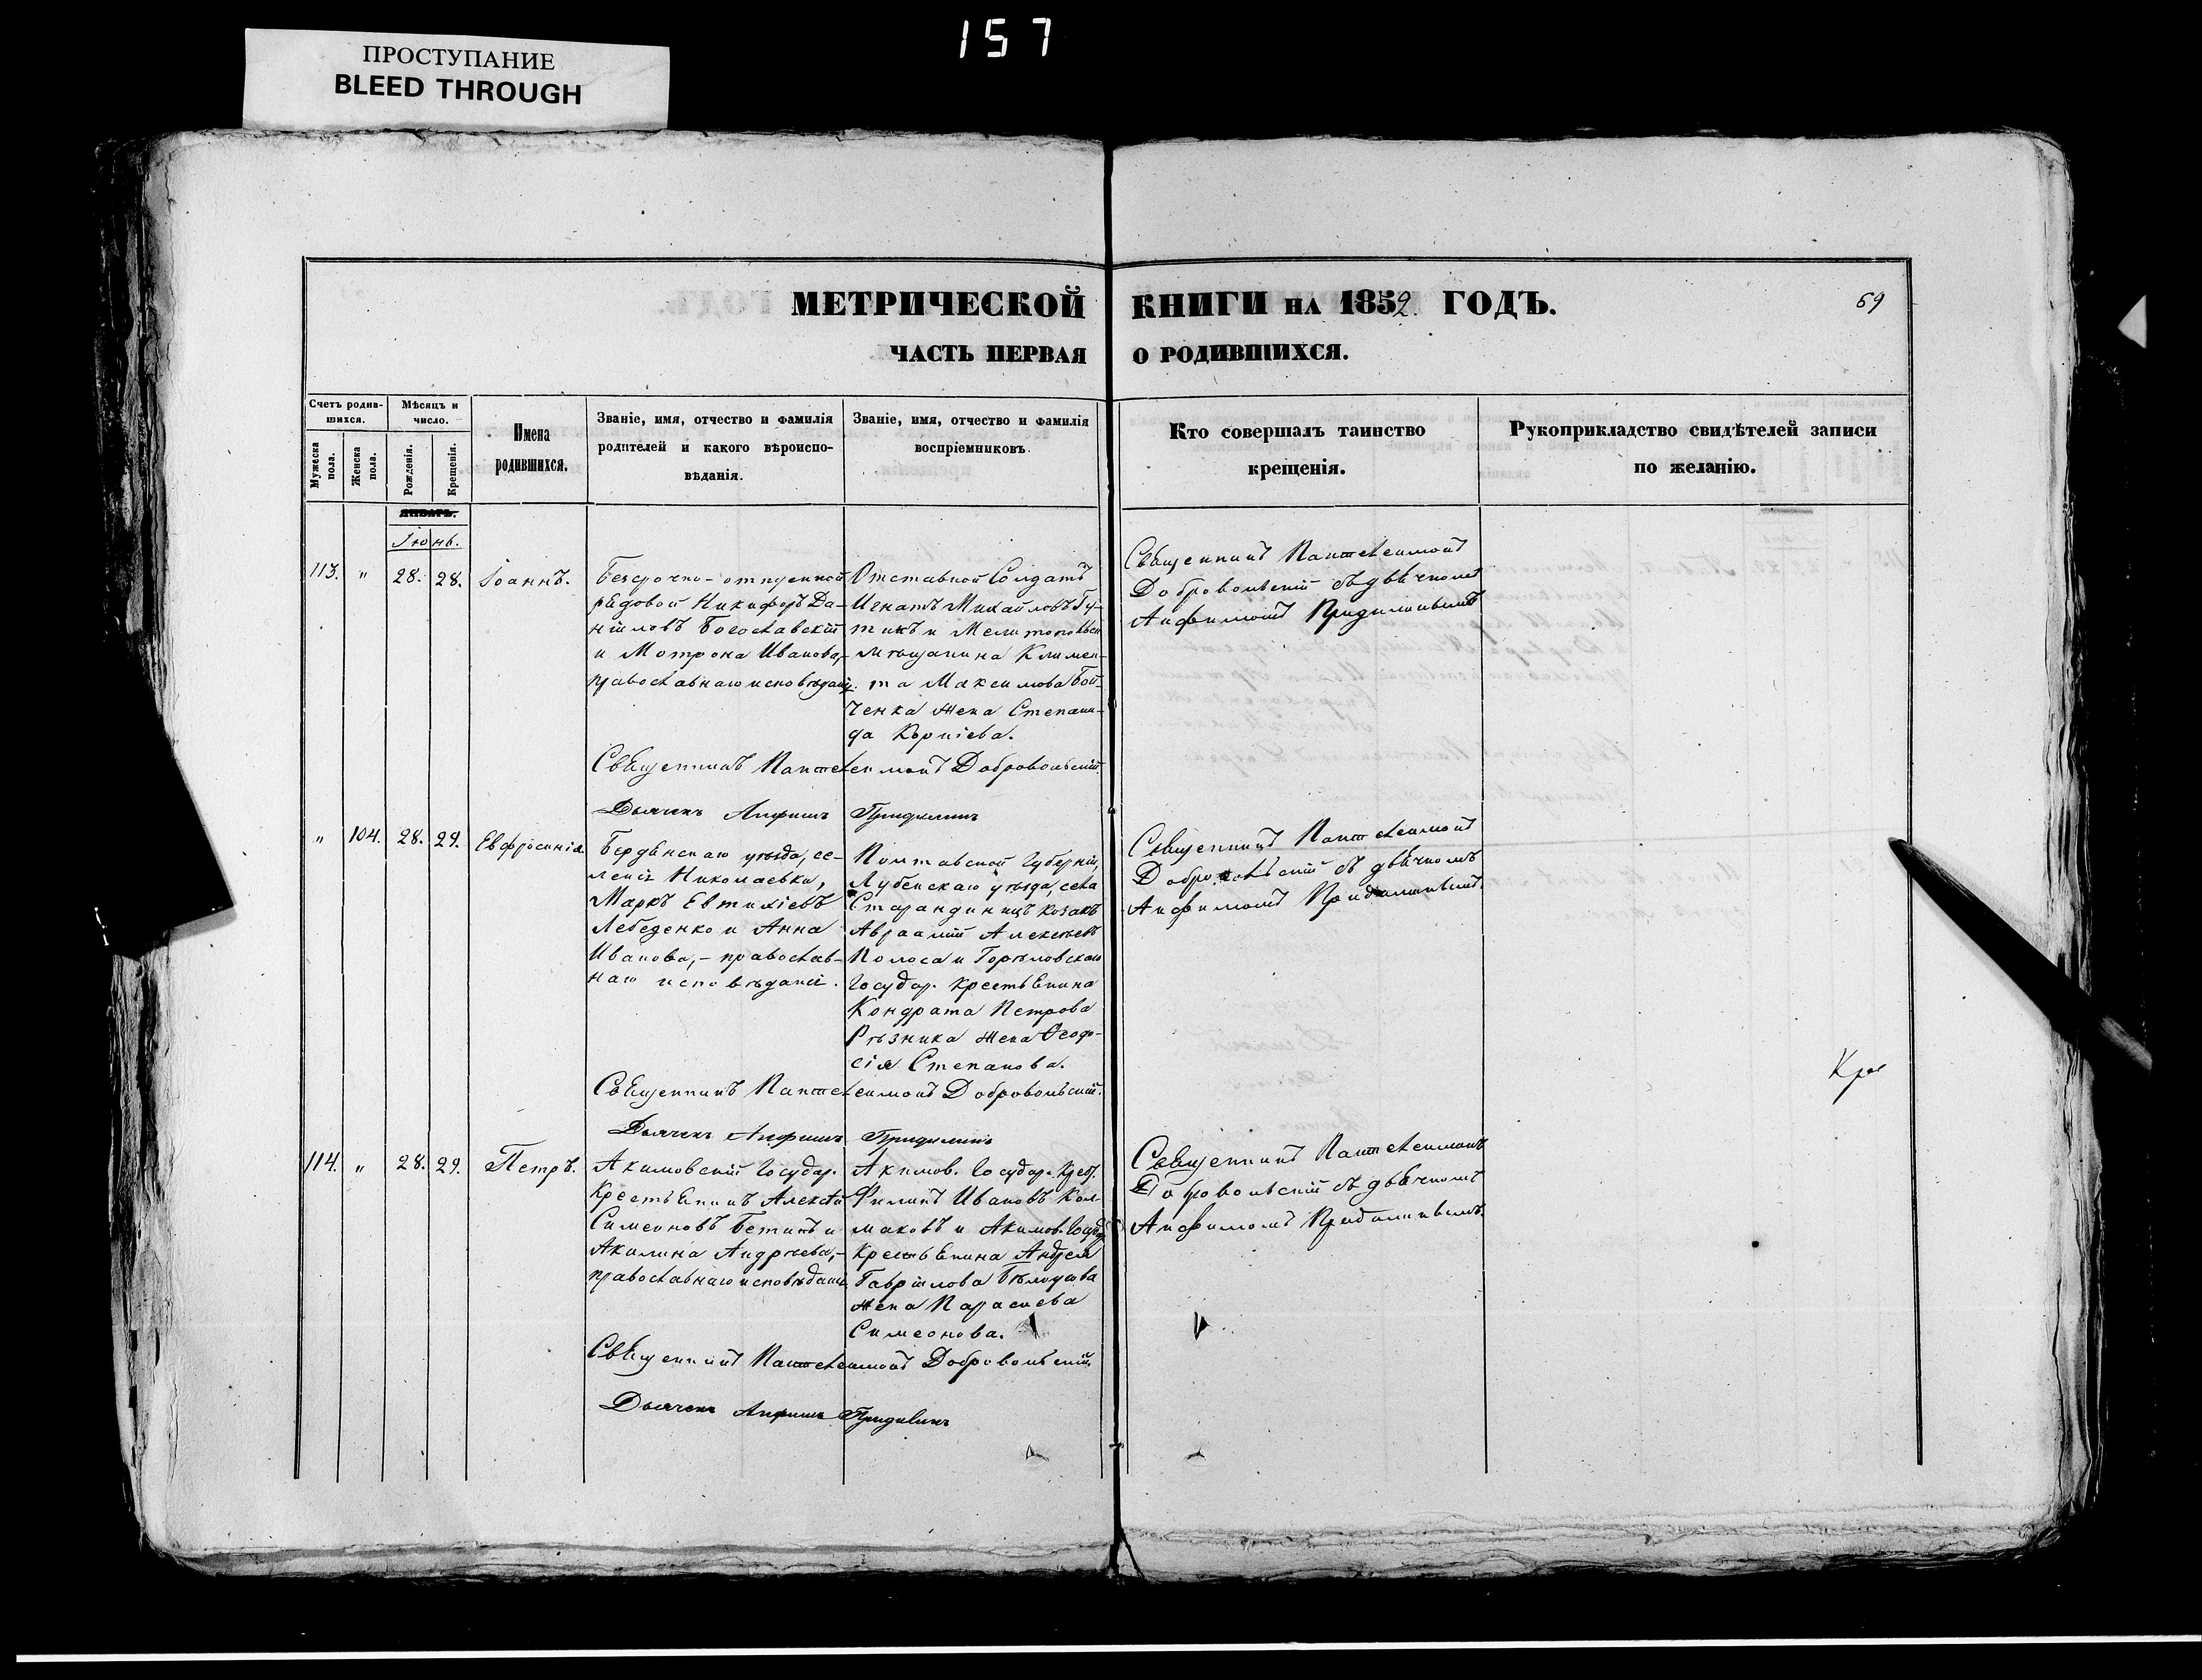 157
ПРОСТУПАНИЕ
BLEED THROUGH
МЕТРИЧЕСКОЙ КНИГИ НА 1852 ГОДЪ.
69
ЧАСТЬ ПЕРВАЯ О РОДИВШИХСЯ.
Счетъ родив-
шихся.
Мужеска
пола.
Женска
пола.
Мѣсяцъ и
число.
Рожденія.
Крещенія.
Имена
родившихся.
Званіе, имя, отчество и фамилія
родителей и какого вѣроиспо-
вѣданія.
Званіе, имя, отчество и фамилія
воспріемниковъ.
Кто совершалъ таинство
крещенія.
Рукоприкладство свидѣтелей записи
по желанію.
ЯНВАРЬ.
Іюнь.
113. " 28. 28. Іоаннъ.
Безсрочно-отпускной
рядовой Никифоръ Да-
ніиловъ Богославскій
и Мотрона Иванова,-
православнаго исповѣданія.
Отставной Солдатъ
Игнатъ Михайловъ Гу-
тикъ и Мелитопольск
мѣщанина Климен-
та Максимова Бой-
ченка жена Степани-
да Корніева.
Священникъ Пантелеимонъ
Добровольскій съ дьячкомъ
Анфимомъ
Священникъ Пантелеимонъ Добровольскій.
Дьячекъ Анфимъ
" 104. 28. 29. Евфросинія
Бердянскаго уѣзда, се-
ленія Николаевки,
Маркъ Евтихіевъ
Лебеденко и Анна
Иванова,- православ-
наго исповѣданія.
Полтавской Губерніи,
Лубенскаго уѣзда, села
козакъ
Авраамій Алексѣевъ
Колоса и Горѣловскаго
Государ. крестьянина
Кондрата Петрова
Рѣзника жена Ѳеодо-
сія Степанова.
Священникъ Пантелеимонъ
Добровольскій съ дьячкомъ
Анфимомъ
Священникъ Пантелеимонъ Добровольскій.
Дьячекъ Анфимъ
114. " 28. 29. Петръ.
Акимовскій Государ.
Крестьянинъ Алексѣй
Симеоновъ и
Акилина Андреева,-
православнаго исповѣданія
Акимов. Государ. Крест.
Филипъ Ивановъ Кол-
маковъ и Акимов. Госуд.
Крестьянина Андрея
Гавріилова Бѣлоусова
жена Параскева
Симеонова.
Священникъ Пантелеимонъ
Добровольскій съ дьячкомъ
Анфимомъ
Священникъ Пантелеимонъ Добровольскій.
Дьячекъ Анфимъ